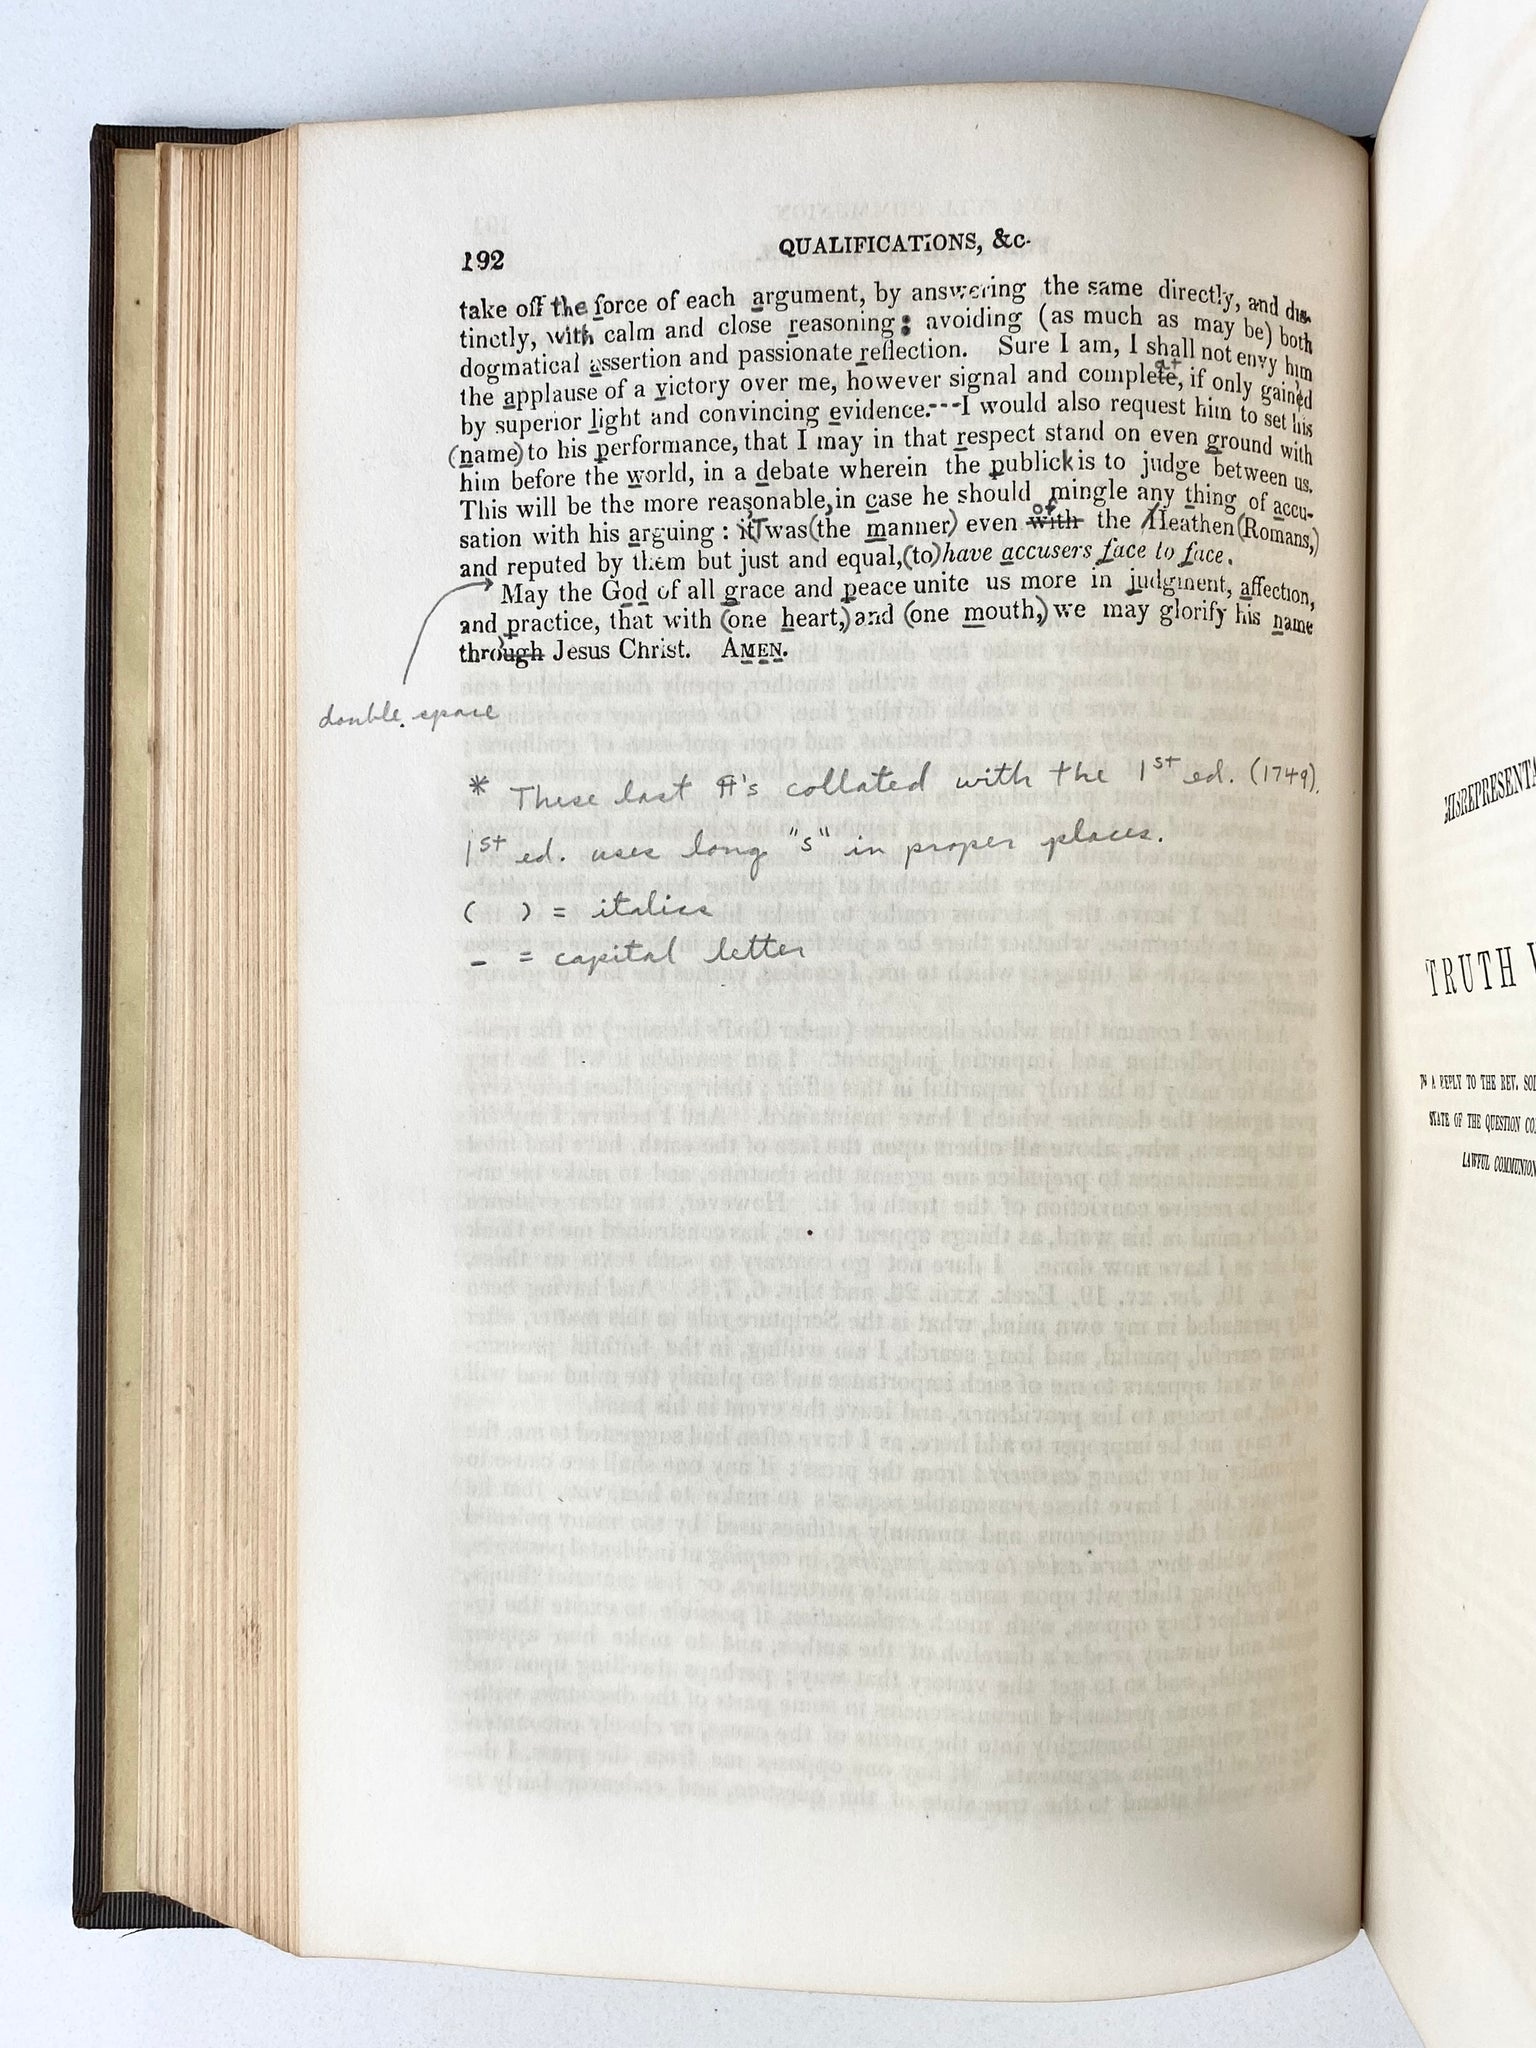 192
QUALIFICATIONS, &c.
take off the force of each argument, by answering the same directly, and dis-
tinctly, with calm and close reasoning; avoiding (as much as may be) both
dogmatical assertion and passionate reflection. Sure I am, I shall not envy him
the applause of a victory over me, however signal and complete, if only gained
by superior light and convincing evidence.---I would also request him to set his
(name) to his performance, that I may in that respect stand on even ground with
him before the world, in a debate wherein the publick is to judge between us.
This will be the more reasonable, in case he should mingle any thing of accu-
of
sation with his arguing: it was (the manner) even with the Heathen (Romans,)
and reputed by them but just and equal, (to) have accusers face to face.
May the God of all grace and peace unite us more in judgment, affection,
and practice, that with (one heart,) and (one mouth,) we may glorify his name
through Jesus Christ. AMEN.
double space
* These last ¶'s collated with the 1st ed. (1749).
1st ed. uses long "s" in proper places.
( ) = italics
_ = capital letter
TRUTH
TO THE REV.
STATE OF THE QUESTION
LAWFUL COMMUNION